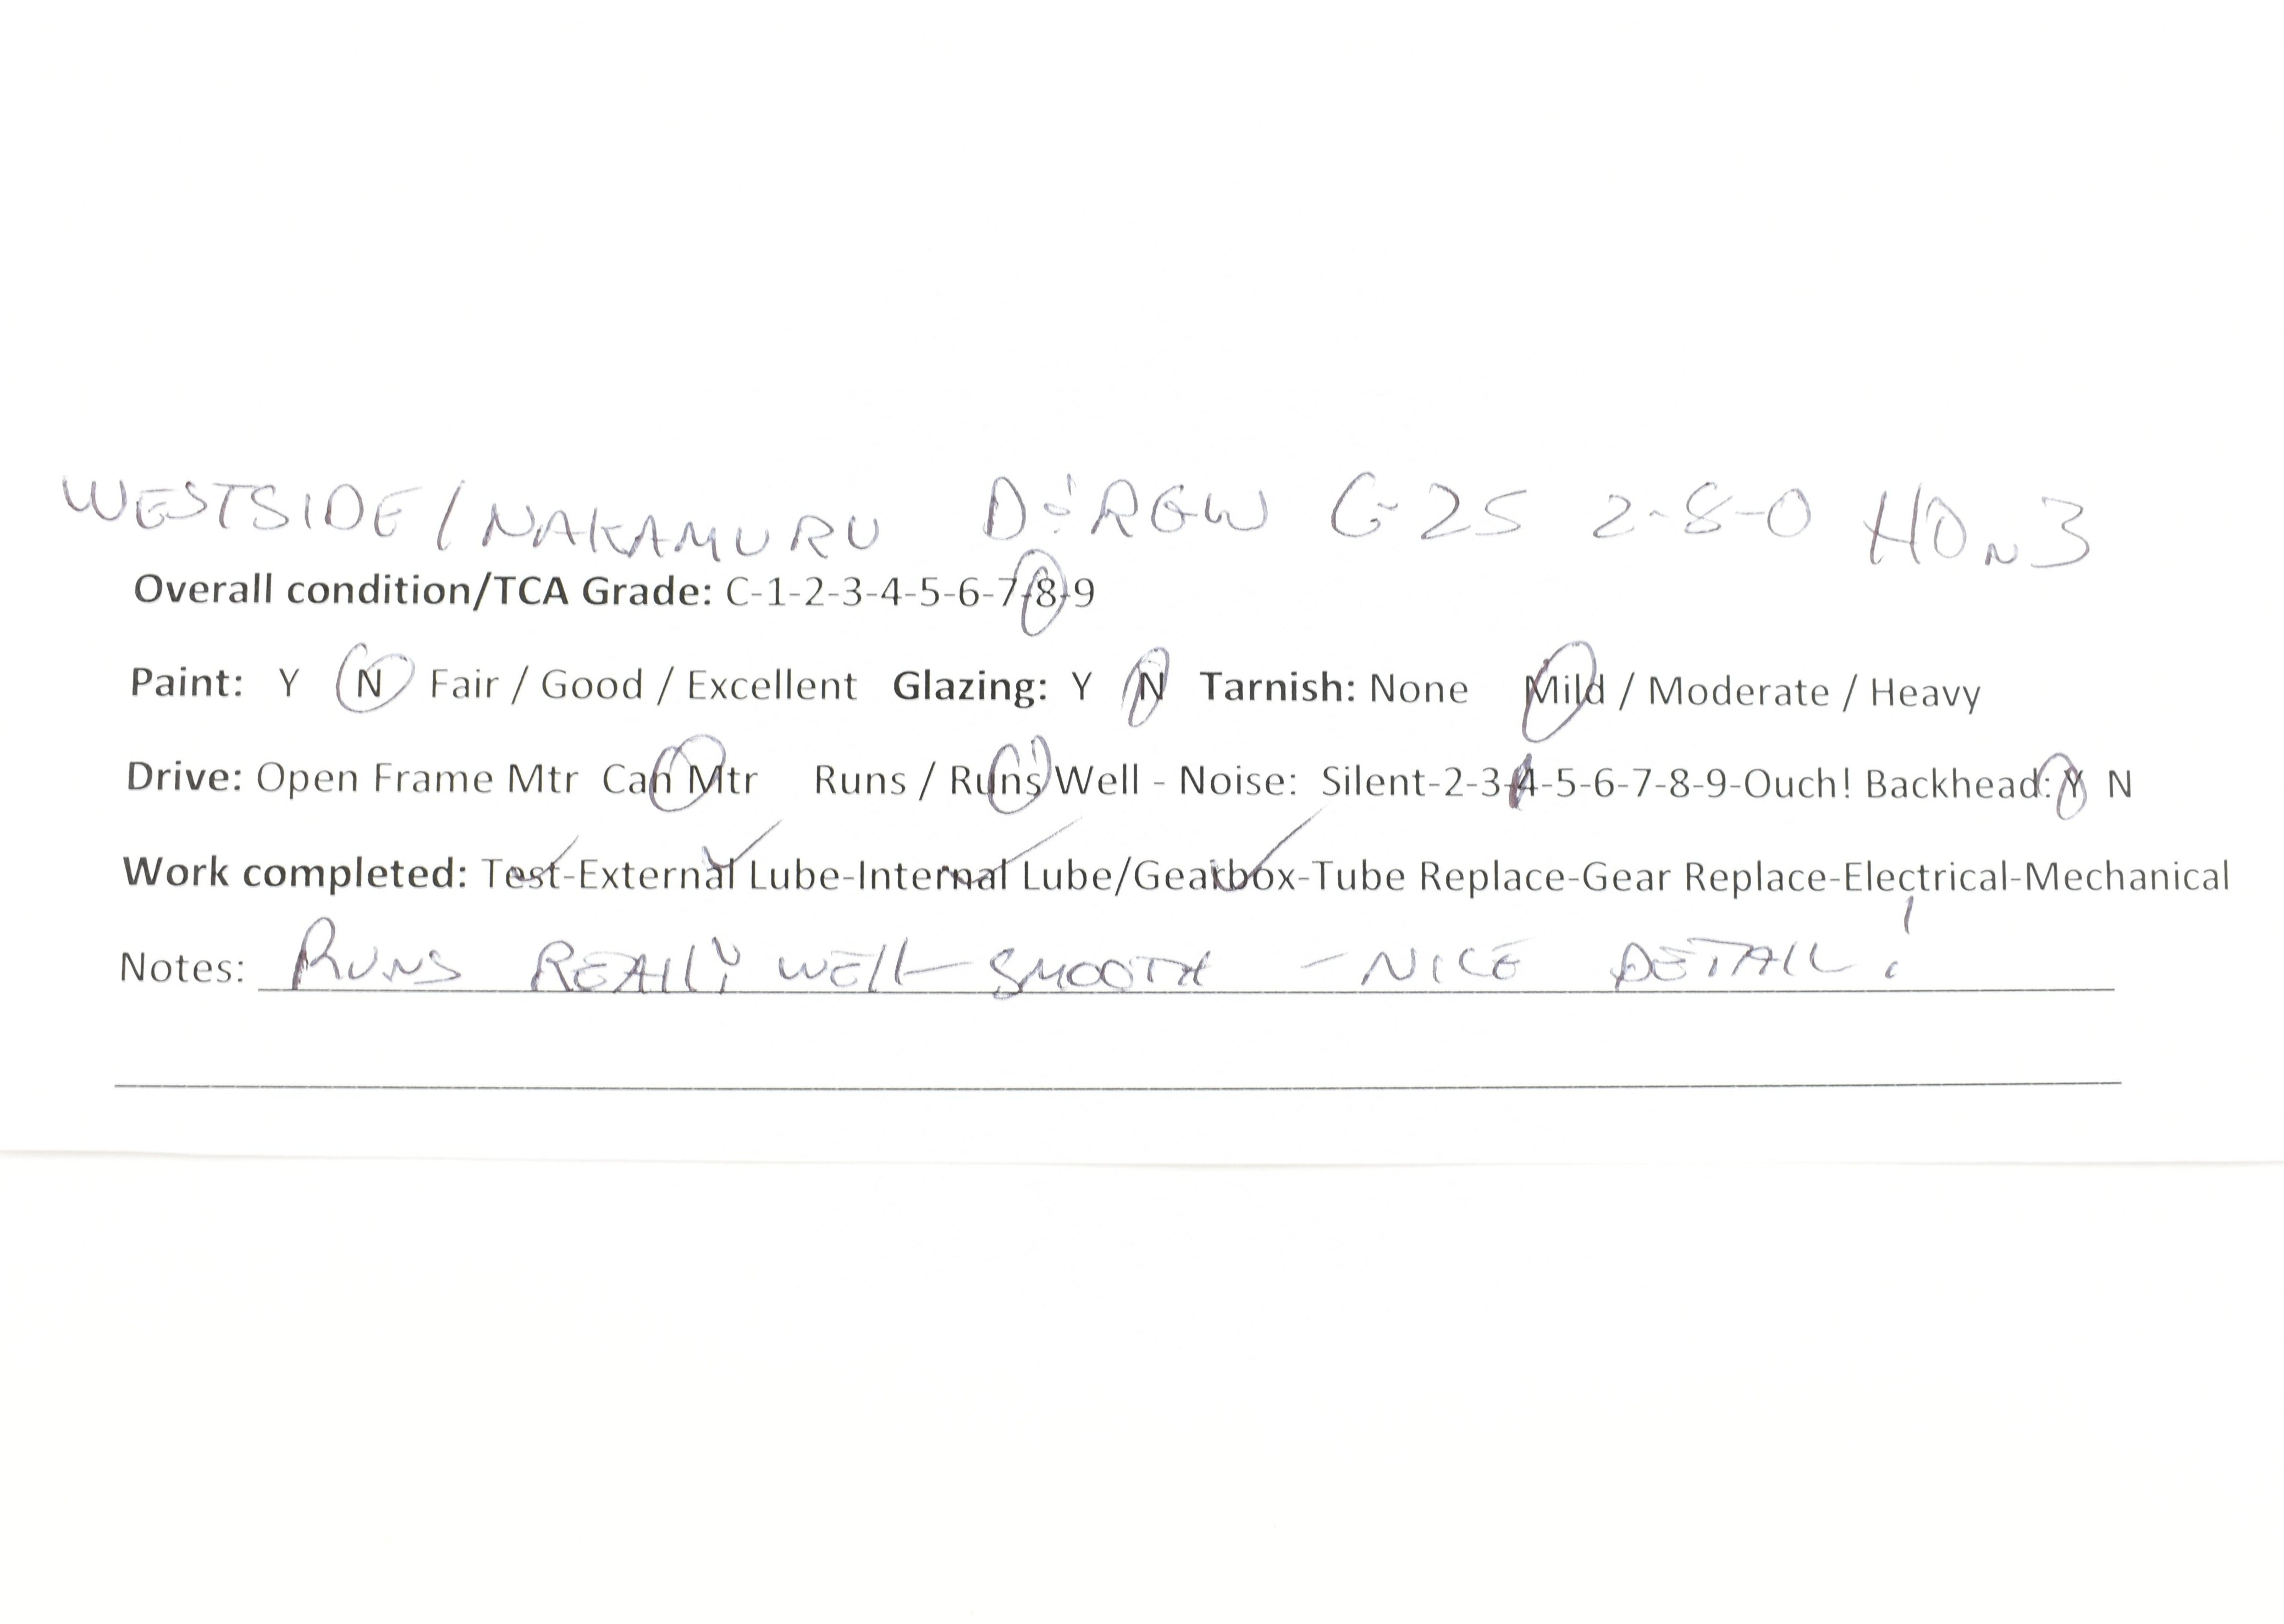 WESTSIDE/NAKAMURU D&RGW C-25 2-8-0 HOn3
Overall condition/TCA Grade: C-1-2-3-4-5-6-7-8-9
Paint: Y N Fair / Good / Excellent Glazing: Y N Tarnish: None Mild / Moderate / Heavy
Drive: Open Frame Mtr Can Mtr Runs / Runs Well - Noise: Silent-2-3-4-5-6-7-8-9-Ouch! Backhead: Y N
Work completed: Test-External Lube-Internal Lube/Gearbox-Tube Replace-Gear Replace-Electrical-Mechanical
Notes: RUNS REALLY WELL - SMOOTH - NICE DETAIL!